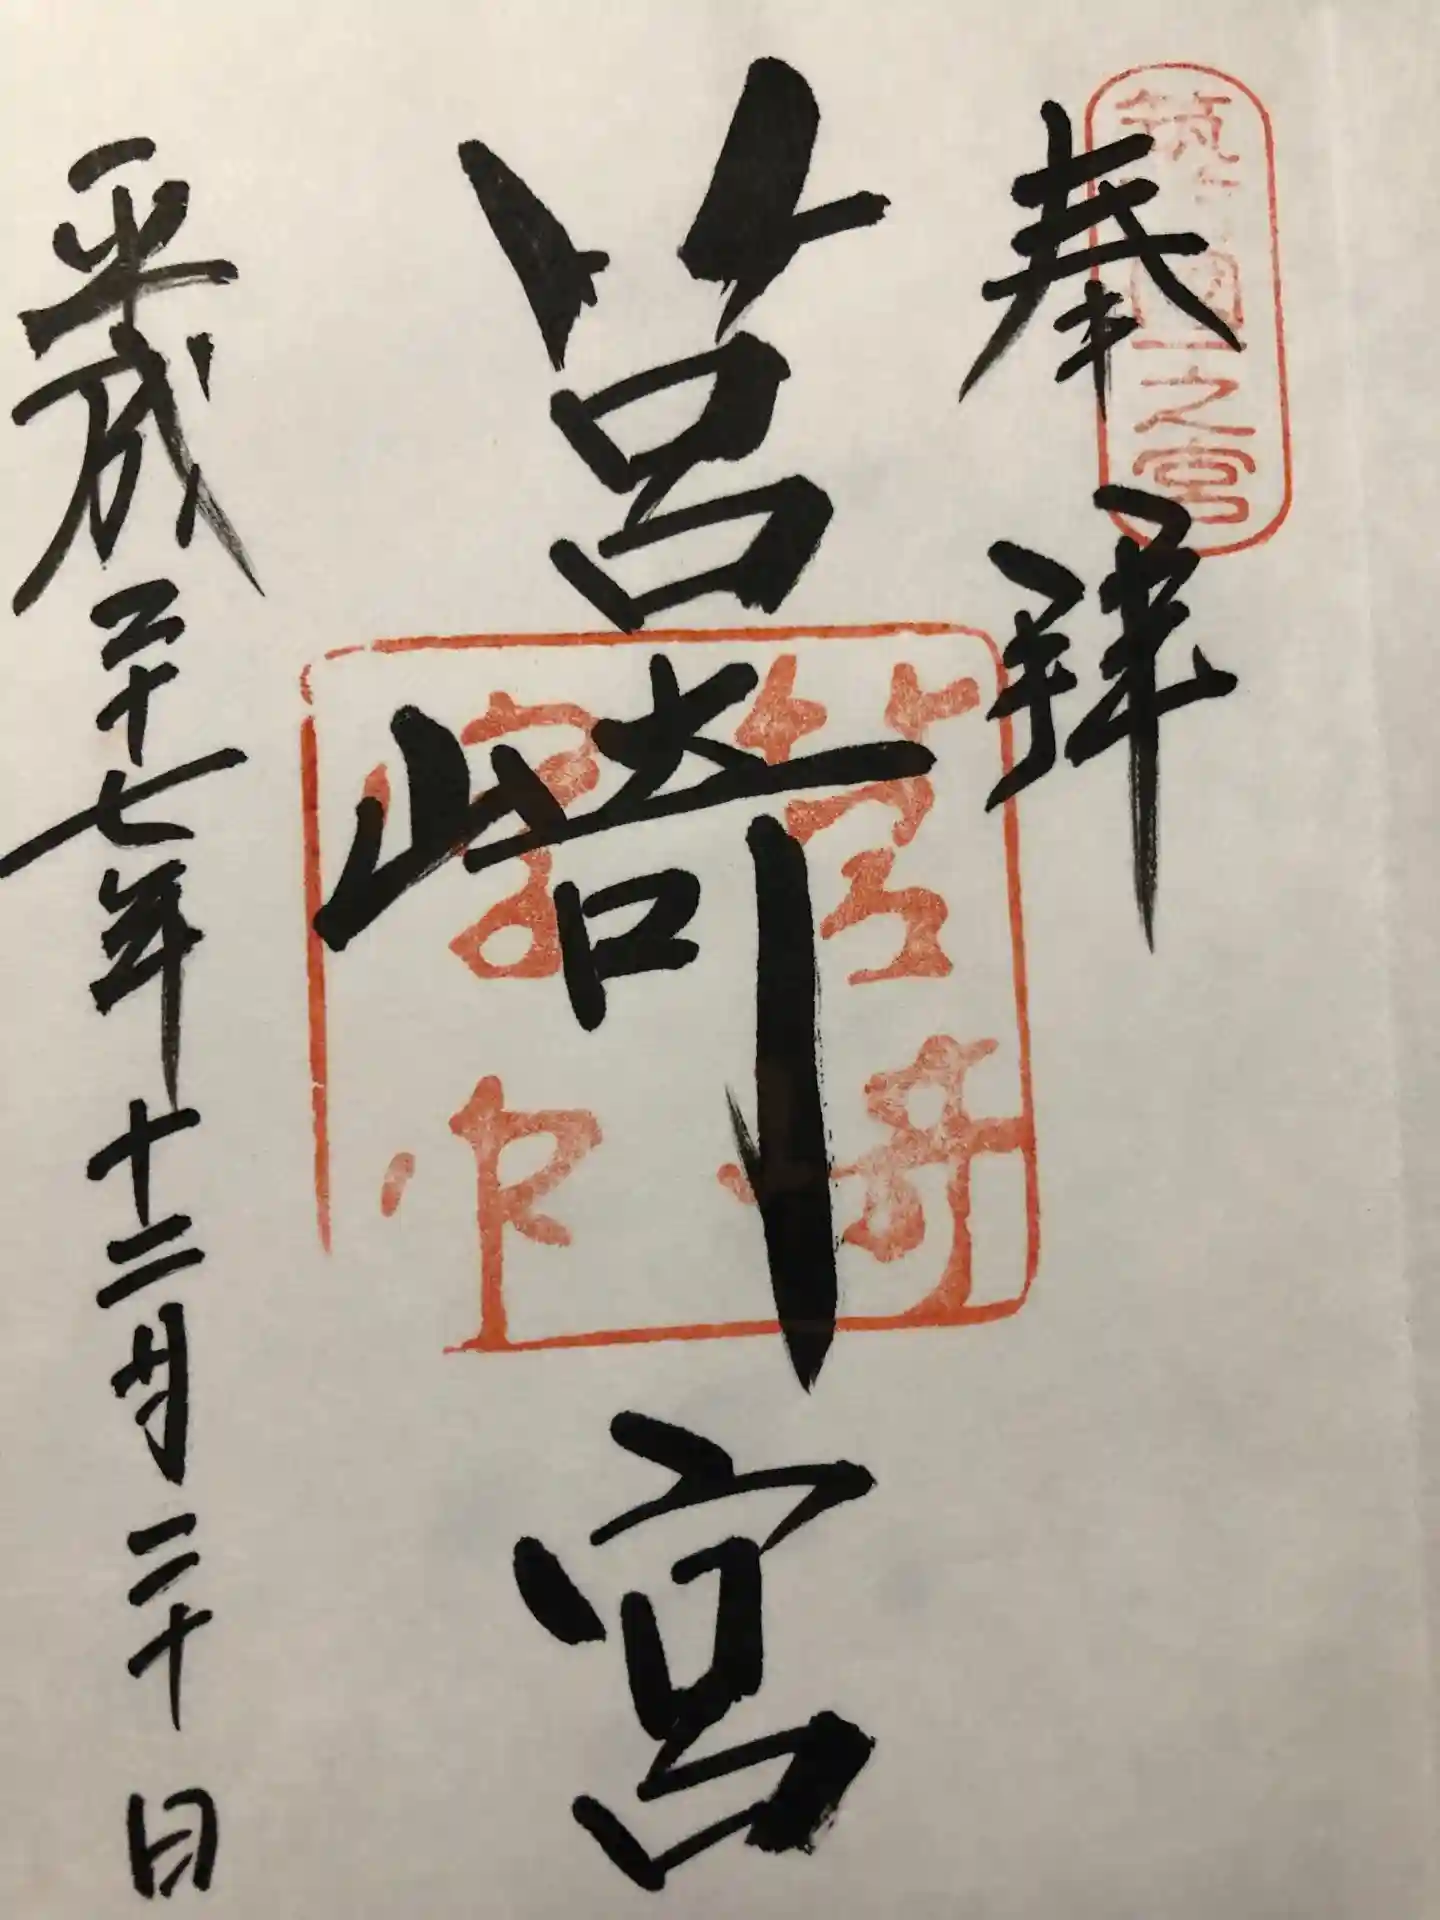 奉拝
筑前國一之宮
筥崎宮
筥崎宮印
平成二十七年十二月二十日